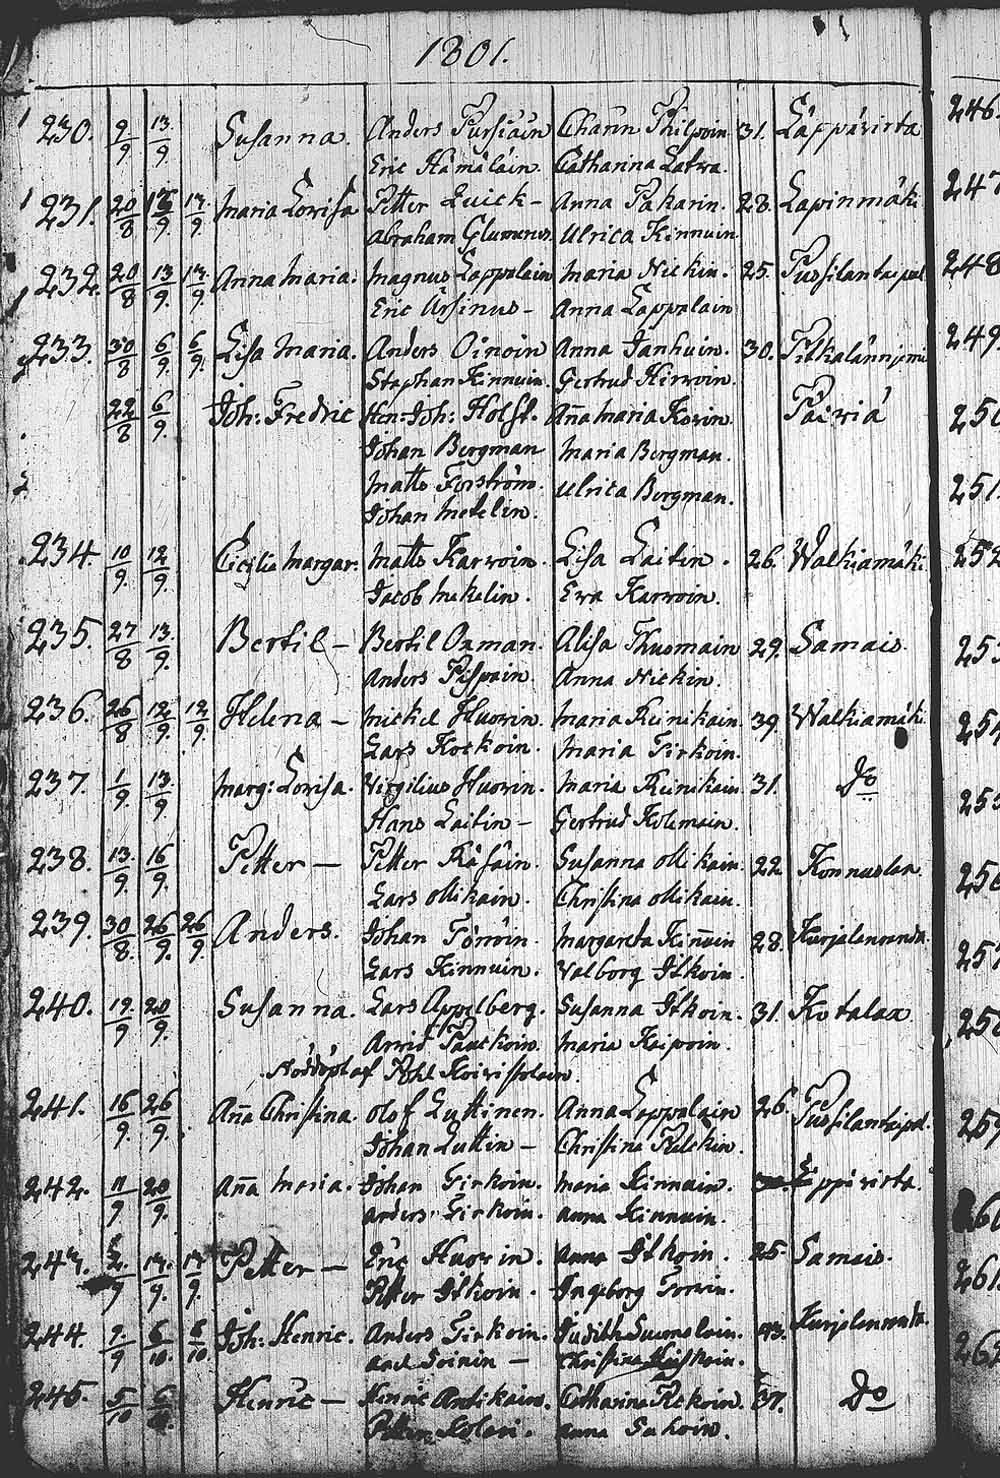 1801.
230. 9/9 13/9 Susanna. Anders Pursiäin Charin Philpoin. 31. Läppävirta 246.
Eric Hämäläin. Catharina Latva.
231. 20/8 13/9. 13/9. Maria Lovisa Petter Quick – Anna Pakarin. 28. Lapinmäki 247
Abraham Ulrica Kinnuin.
232. 20/8 13/9. 13/9. Anna Maria. Magnus Lappalain Maria Nickin. 25. 248
Eric Ursinus – Anna Lappalain
233. 30/8 6/9. 6/9. Lisa Maria. Anders Oinoin Anna Janhuin. 30. 249.
Stephan Kinnuin. Gertrud Hirvoin.
22/8 6/9. Joh: Fredric Hen: Joh: Holst. Aña Maria Kovin. 250
Johan Bergman Maria Bergman.
Matts Forström. Ulrica Bergman. 251.
Johan Mekelin.
234. 10/9. 12/9. Cicilia Margar: Matts Karvoin. Lisa Laitin. 26. Walkiamäki. 252
Jacob Mekelin. Eva Karvoin.
235. 27/8 13/9. Bertil – Bertil Oxman. Alisa Thuomain 29. Samais. 253
Anders Pispain. Anna Nickin.
236. 26/8 12/9. 12/9. Helena – Mickel Huovin. Maria Reinikain. 39. Walkiamäki. 254
Lars Korkoin. Maria Tirkoin.
237. 1/9. 13/9. Marg: Lovisa. Virgilius Huovin. Maria Reinikain 31. Do 255
Hans Laitin – Gertrud Kolemain.
238. 13/9. 16/9. Petter – Petter Räsäin. Susanna Ollikain. 22 Konnuslax 256
Lars Ollikain. Christina Ollikain.
239. 30/8. 26/9. 26/9. Anders. Johan Tönöin. Margareta Kiñuin 28. Kurjalanranda. 257
Lars Kinnuin. Valborg Itkoin.
240. 19/9 20/9. Susanna. Lars Appelberg. Susanna Itkoin. 31. Kotalax 258
Arvid Paackoin. Maria Keipoin.
Nöddöpt af Pehl Koivistolain.
241. 16/9. 26/9. Aña Christina. Olof Luttinen. Anna Lappalain 26. 259
Johan Luttin – Christina Pelckin.
242. 11/9 20/9. Aña Maria. Johan Tirkoin. Maria Kinnuin. Läppävirta. 260
Anders Tirkoin. Anna Kinnuin.
243. 2/9 13/9. 13/9. Petter – Eric Huovin. Anna Itkoin. 25. Samais. 261.
Petter Itkoin. Ingeborg Torvin.
244. 9/9 6/10. 6/10. Joh: Henric. Anders Tirkoin. Judith Suomalain. 43. Kurjalanranda. 262
And Soinin – Christina
245. 5/10 6/10. Henric – Henric Antikain. Catharina Rekoin. 37. Do
Petter Anna Sahoin.